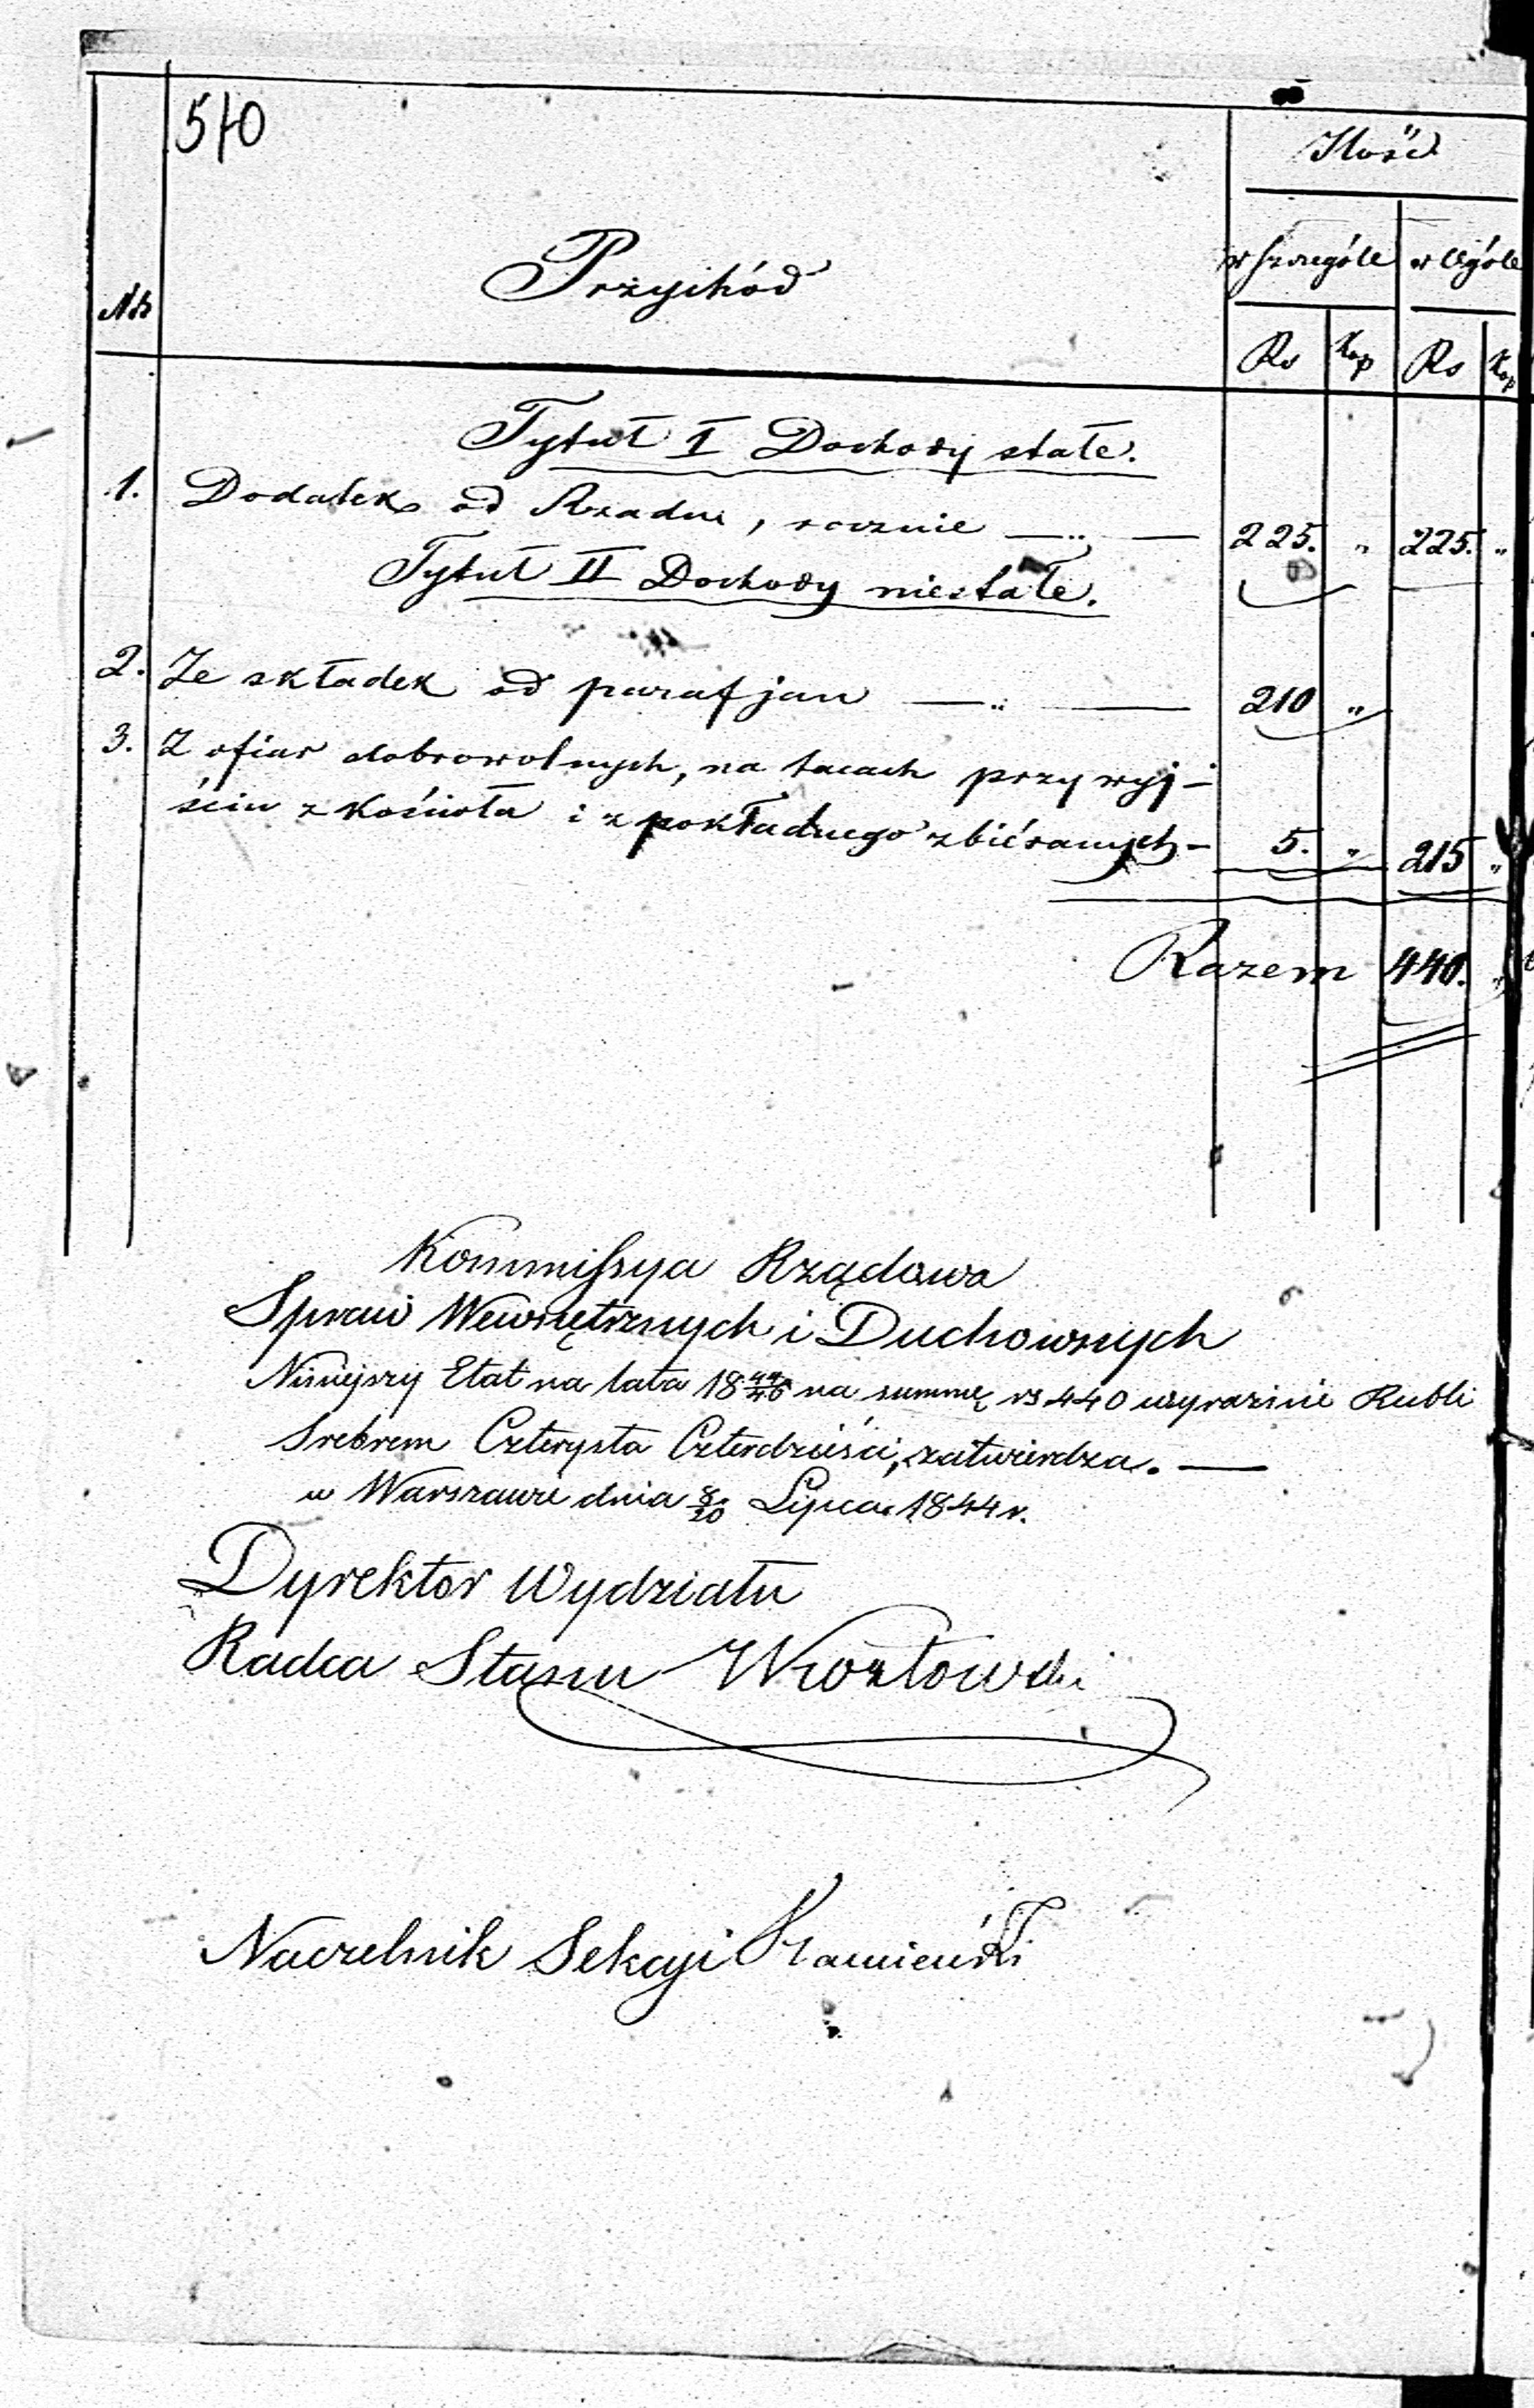 510
Ilość
Przychód
w szczególe w Ogóle
Nr
Rs Kop Rs Kop
Tytuł I Dochody stałe.
1. Dodatek od Rządu, rocznie 225. " 225. "
Tytuł II Dochody niestałe.
2. Ze składek od parafjan 210 "
3. Z ofiar dobrowolnych, na tacach przy wyj-
ściu z Kościoła i z pokładnego zbiéranych - 5. " 215 "
Razem 440. "
Kommissya Rządowa
Spraw Wewnętrznych i Duchownych
Niniejszy Etat na lata 18 44/46 na summę rs 440 wyraźnie Rubli
Srebrem Czterysta Czterdzieści, zatwierdza.
w Warszawie dnia 8/20 Lipca 1844 r.
Dyrektor Wydziału
Radca Stanu
Naczelnik Sekcyi Kamieński